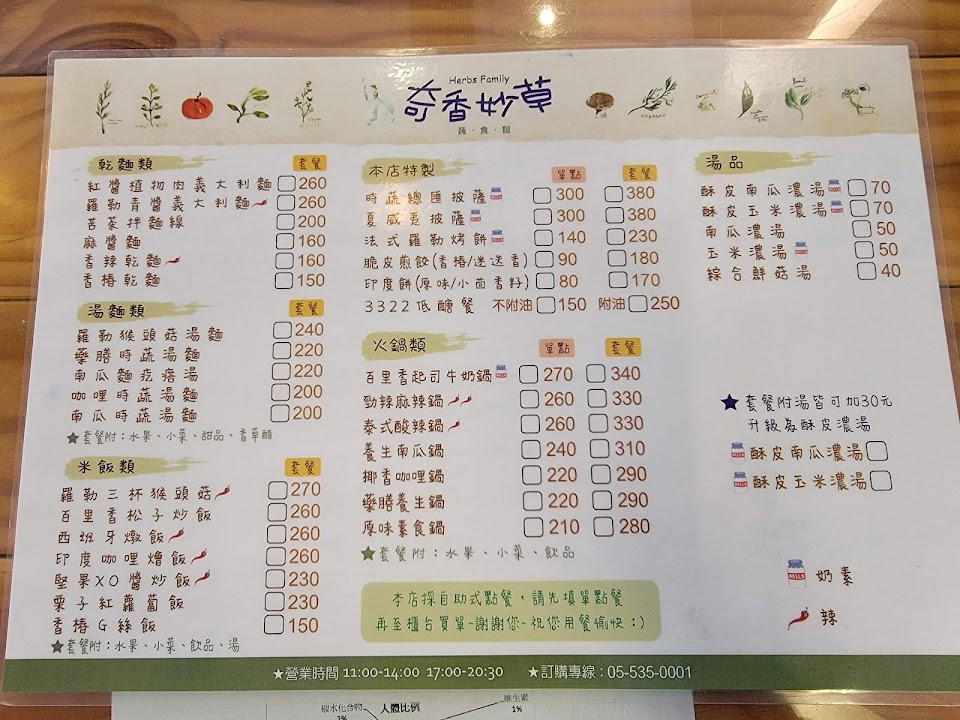 Herbs Family
奇香妙草
蔬·食·館
乾麵類 套餐
紅醬植物肉義大利麵 260
羅勒青醬義大利麵 260
苦茶拌麵線 200
麻醬麵 160
香辣乾麵 160
香椿乾麵 150
湯麵類 套餐
羅勒猴頭菇湯麵 240
藥膳時蔬湯麵 220
南瓜麵疙瘩湯 220
咖哩時蔬湯麵 200
南瓜時蔬湯麵 200
★套餐附:水果、小菜、甜品、香草醋
米飯類 套餐
羅勒三杯猴頭菇 270
百里香松子炒飯 260
西班牙燉飯 260
印度咖哩燴飯 260
堅果XO醬炒飯 230
栗子紅蘿蔔飯 230
香椿G絲飯 150
★套餐附:水果、小菜、飲品、湯
本店特製 單點 套餐
時蔬總匯披薩 300 380
夏威夷披薩 300 380
法式羅勒烤餅 140 230
脆皮煎餃(香椿/迷迭香) 90 180
印度餅(原味/小茴香料) 80 170
3322低醣餐 不附油 150 附油 250
火鍋類 單點 套餐
百里香起司牛奶鍋 270 340
勁辣麻辣鍋 260 330
泰式酸辣鍋 260 330
養生南瓜鍋 240 310
椰香咖哩鍋 220 290
藥膳養生鍋 220 290
原味素食鍋 210 280
★套餐附:水果、小菜、飲品
本店採自助式點餐,請先填單點餐
再至櫃台買單~謝謝您~祝您用餐愉快:)
湯品
酥皮南瓜濃湯 70
酥皮玉米濃湯 70
南瓜濃湯 50
玉米濃湯 50
綜合鮮菇湯 40
★套餐附湯皆可加30元
升級為酥皮濃湯
酥皮南瓜濃湯
酥皮玉米濃湯
MILK 奶素
辣
★營業時間 11:00-14:00 17:00-20:30 ★訂購專線:05-535-0001
碳水化合物 人體比例 維生素
1%